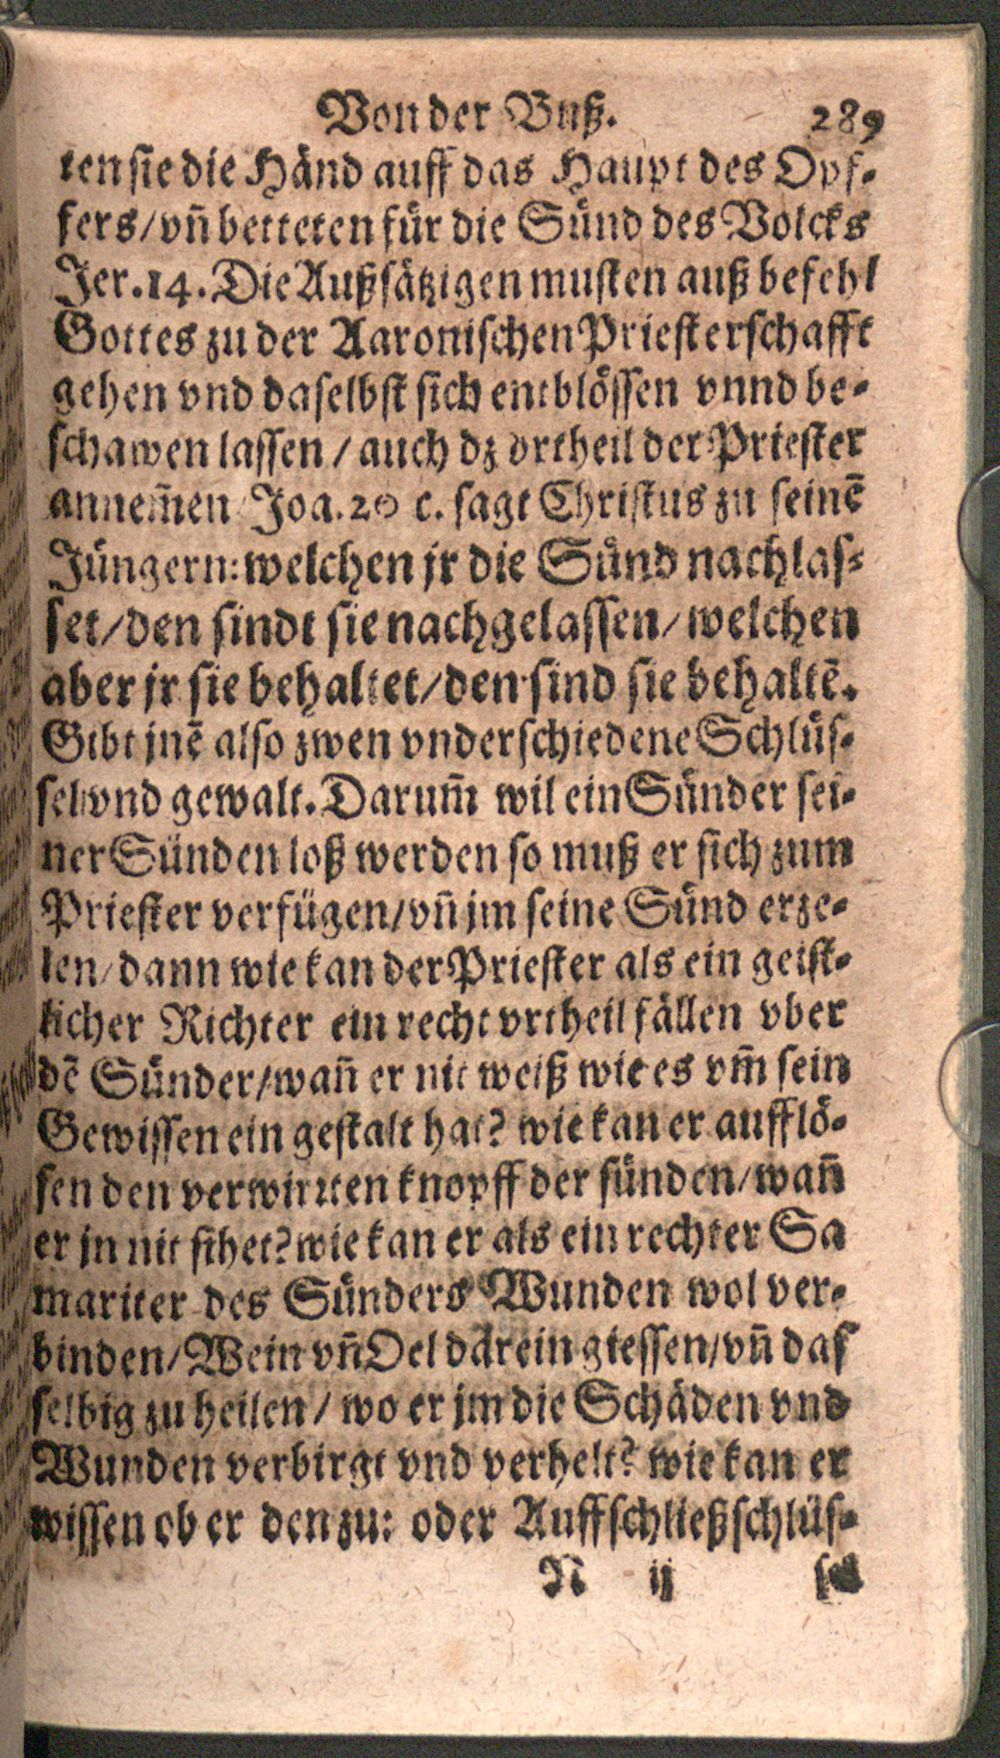 Von der Buß. 289
ten sie die Händ auff das Haupt des Opf-
fers/vñ betteten für die Sünd des Volcks
Jer. 14. Die Außsätzigen musten auß befehl
Gottes zu der Aaronischen Priesterschafft
gehen vnd daselbst sich entblössen vnnd be-
schawen lassen / auch dz vrtheil der Priester
annem̃en Joa. 20 c. sagt Christus zu seinẽ
Jüngern: welchen jr die Sünd nachlas-
set/den sindt sie nachgelassen/welchen
aber jr sie behaltet/den sind sie behaltẽ.
Gibt jnẽ also zwen vnderschiedene Schlüs-
sel vnd gewalt. Darum̃ wil ein Sünder sei-
ner Sünden loß werden so muß er sich zum
Priester verfügen/vñ jm seine Sünd erze-
len/dann wie kan der Priester als ein geist-
licher Richter ein recht vrtheil fällen vber
dẽ Sünder/wañ er nit weiß wie es vm̃ sein
Gewissen ein gestalt hat? wie kan er aufflö-
sen den verwirrten knopff der sünden/wañ
er jn nit sihet? wie kan er als ein rechter Sa
mariter des Sünders Wunden wol ver-
binden/Wein vñ Oel darein giessen/vñ das
selbig zu heilen / wo er jm die Schäden vnd
Wunden verbirgt vnd verhelt? wie kan er
wissen ob er den zu: oder Auffschließschlüs-
N ij sel